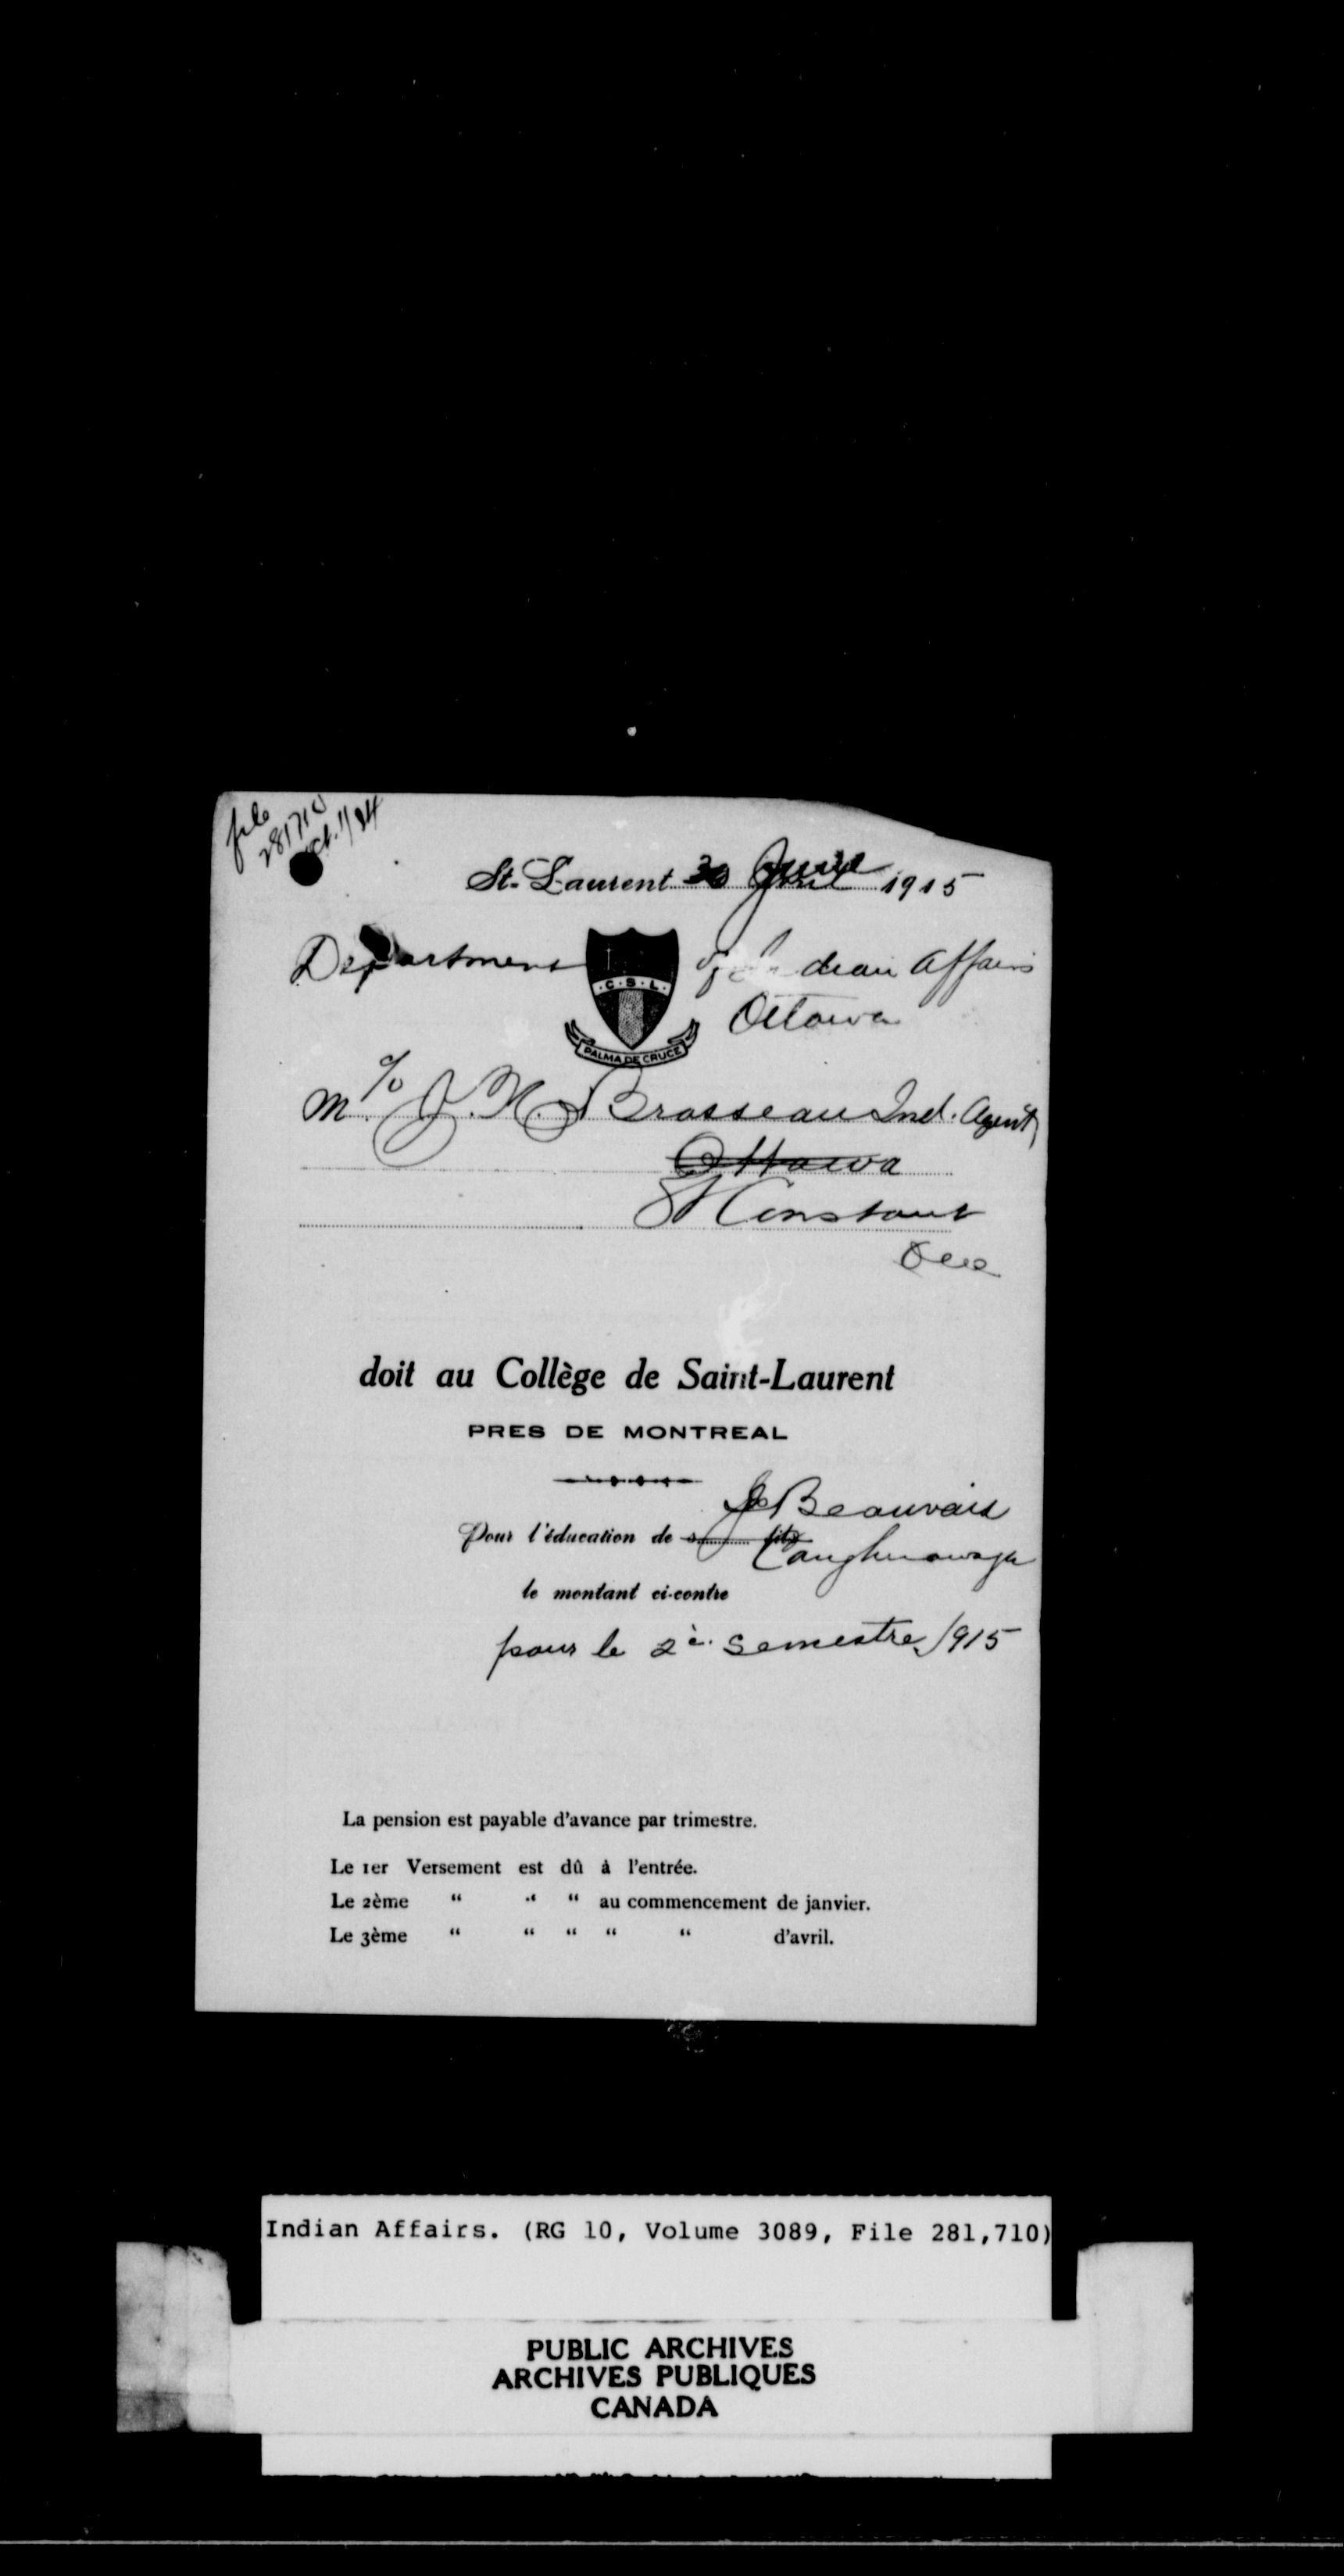 file
281710
Oct. 1/24
St-Laurent 30 1915
Department of Indian Affairs
Ottawa
C.S.L.
PALMA DE CRUCE
c/o
M. J. N. Brosseau Ind. Agent
Ottawa
St Constant
Que
doit au Collège de Saint-Laurent
PRES DE MONTREAL
J Beauvais
Pour l'éducation de s fils
Caughnawaga
le montant ci-contre
pour le 2è. Semestre 1915
La pension est payable d'avance par trimestre.
Le 1er Versement est dû à l'entrée.
Le 2ème " " " au commencement de janvier.
Le 3ème " " " " " d'avril.
Indian Affairs. (RG 10, Volume 3089, File 281,710)
PUBLIC ARCHIVES
ARCHIVES PUBLIQUES
CANADA